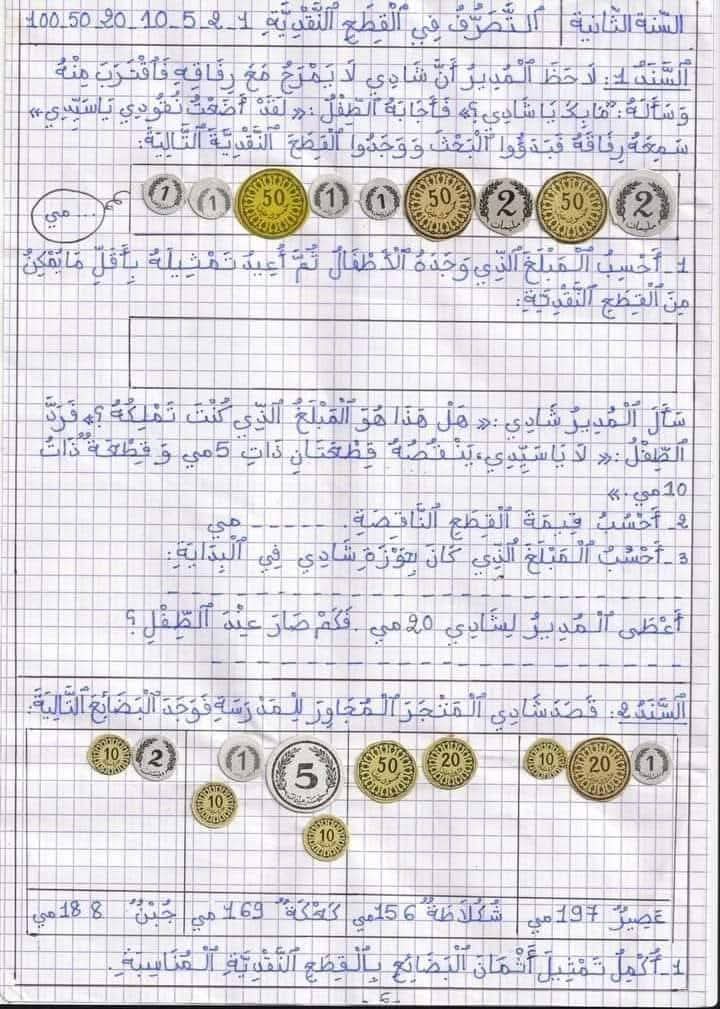 السنة الثانية | التَّصَرُّفُ فِي الْقِطَعِ النَّقْدِيَّةِ 1_2_5_10_20_50_100
السَّنَدُ 1: لَاحَظَ الْمُدِيرُ أَنَّ شَادِي لَا يَمْرَحُ مَعَ رِفَاقِهِ فَاقْتَرَبَ مِنْهُ
وَسَأَلَهُ: "مَا بِكَ يَا شَادِي؟» فَأَجَابَهُ الطِّفْلُ: «لَقَدْ أَضَعْتُ نُقُودِي يَا سَيِّدِي»
سَمِعَهُ رِفَاقُهُ فَبَدَؤُوا الْبَحْثَ وَوَجَدُوا الْقِطَعَ النَّقْدِيَّةَ التَّالِيَةَ:
1 1 50 1 1 50 2 مليمات 50 2 مليمات
.... مي
1_ أَحْسِبُ الْمَبْلَغَ الَّذِي وَجَدَهُ الْأَطْفَالُ ثُمَّ أُعِيدُ تَمْثِيلَهُ بِأَقَلِّ مَا يُمْكِنُ
مِنَ الْقِطَعِ النَّقْدِيَّةِ:
سَأَلَ الْمُدِيرُ شَادِي: «هَلْ هَذَا هُوَ الْمَبْلَغُ الَّذِي كُنْتَ تَمْلِكُهُ؟» فَرَدَّ
الطِّفْلُ: «لَا يَا سَيِّدِي، يَنْقُصُهُ قِطْعَتَانِ ذَاتِ 5 مي وَ قِطْعَةٌ ذَاتُ
10 مي.»
2_ أَحْسُبُ قِيمَةَ الْقِطَعِ النَّاقِصَةِ. _ _ _ _ _ مي
3_ أَحْسُبُ الْمَبْلَغَ الَّذِي كَانَ بِحَوْزَةِ شَادِي فِي الْبِدَايَةِ:
أَعْطَى الْمُدِيرُ لِشَادِي 20 مي. فَكَمْ صَارَ عِنْدَ الطِّفْلِ؟
السَّنَدُ 2: قَصَدَ شَادِي الْمَتْجَرَ الْمُجَاوِرَ لِلْمَدْرَسَةِ فَوَجَدَ الْبَضَائِعَ التَّالِيَةَ:
10 2 1 5 50 20 10 20 1
10
10
عَصِيرٌ 197 مي شُكُلَاطَةٌ 156 مي كَعْكَةٌ 169 مي جُبْنٌ 188 مي
1_ أُكْمِلُ تَمْثِيلَ أَثْمَانِ الْبَضَائِعِ بِالْقِطَعِ النَّقْدِيَّةِ الْمُنَاسِبَةِ.